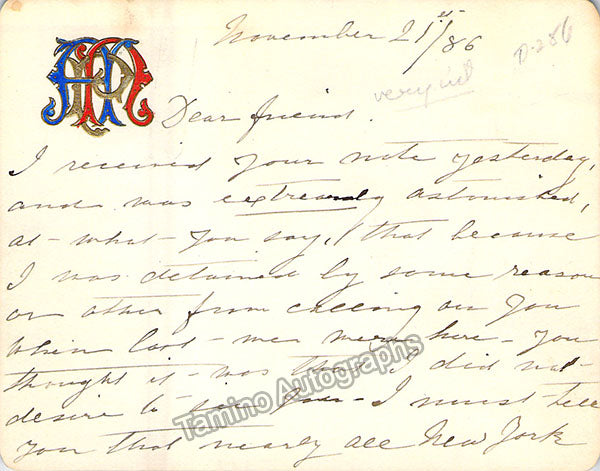 November 21st/86
D-286
very ill
Dear friend.
I received your note yesterday,
and was extremely astonished,
at what you say, that because
I was detained by some reason
or other from calling on you
when last we were here you
thought it was that I did not
desire to see you I must tell
you that nearly all New York
Tamino Autographs